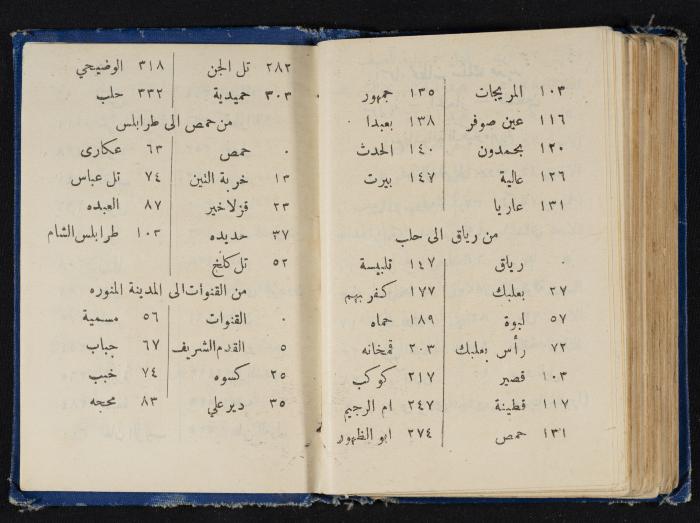 ١٠٣ المريجات ١٣٥ جمهور
١١٦ عين صوفر ١٣٨ بعبدا
١٢٠ بحمدون ١٤٠ الحدث
١٢٦ عالية ١٤٧ بيرت
١٣١ عاريا
من رياق الى حلب
رياق ١٤٧ تلبيسة
٢٧ بعلبك ١٧٧ كفربهم
٥٧ لبوة ١٨٩ حماه
٧٢ رأس بعلبك ٢٠٣ قمحانه
١٠٣ قصير ٢١٧ كوكب
١١٧ قطينة ٢٤٧ ام الرجيم
١٣١ حمص ٢٧٤ ابو الظهور
٢٨٢ تل الجن ٣١٨ الوضيحي
٣٠٣ حميدية ٣٣٢ حلب
من حمص الى طرابلس
٠ حمص ٦٣ عكارى
١٣ خربة التين ٧٤ تل عباس
٢٣ قزلاخير ٨٧ العبده
٣٧ حديده ١٠٢ طرابلس الشام
٥٢ تل كلخ
من القنوات الى المدينة المنوره
٠ القنوات ٥٦ مسمية
٥ القدم الشريف ٦٧ جباب
٢٥ كسوه ٧٤ خبب
٣٥ دير علي ٨٣ محجه